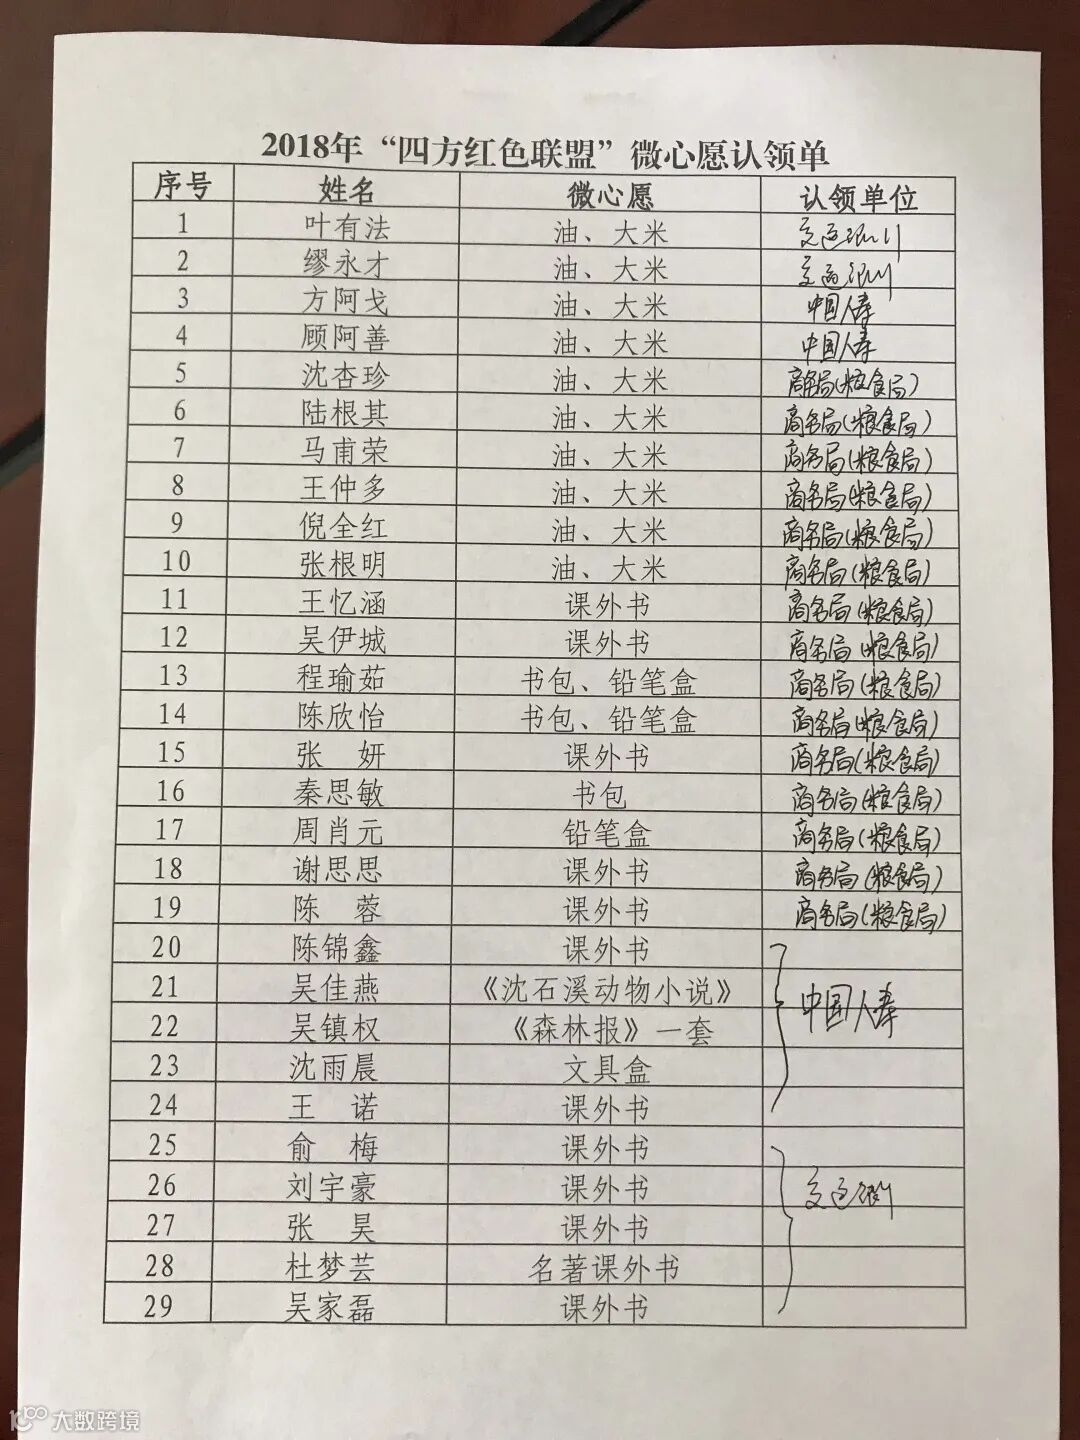 2018年“四方红色联盟”微心愿认领单
序号 姓名 微心愿 认领单位
1 叶有法 油、大米 交通银行
2 缪永才 油、大米 交通银行
3 方阿戈 油、大米 中国人寿
4 顾阿善 油、大米 中国人寿
5 沈杏珍 油、大米 商务局(粮食局)
6 陆根其 油、大米 商务局(粮食局)
7 马甫荣 油、大米 商务局(粮食局)
8 王仲多 油、大米 商务局(粮食局)
9 倪全红 油、大米 商务局(粮食局)
10 张根明 油、大米 商务局(粮食局)
11 王忆涵 课外书 商务局(粮食局)
12 吴伊城 课外书 商务局(粮食局)
13 程瑜茹 书包、铅笔盒 商务局(粮食局)
14 陈欣怡 书包、铅笔盒 商务局(粮食局)
15 张 妍 课外书 商务局(粮食局)
16 秦思敏 书包 商务局(粮食局)
17 周肖元 铅笔盒 商务局(粮食局)
18 谢思思 课外书 商务局(粮食局)
19 陈 蓉 课外书 商务局(粮食局)
20 陈锦鑫 课外书
21 吴佳燕 《沈石溪动物小说》 中国人寿
22 吴镇权 《森林报》一套
23 沈雨晨 文具盒
24 王 诺 课外书
25 俞 梅 课外书
26 刘宇豪 课外书 交通银行
27 张 昊 课外书
28 杜梦芸 名著课外书
29 吴家磊 课外书
大数跨境